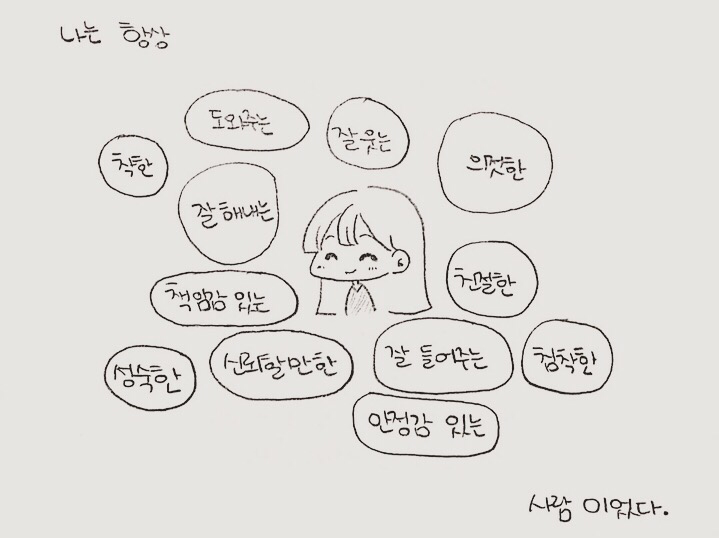 나는 항상
도와주는
잘 웃는
의젓한
착한
잘 해내는
친절한
책임감 있는
성숙한
신뢰할 만 한
잘 들어주는
침착한
안정감 있는
사람 이었다.